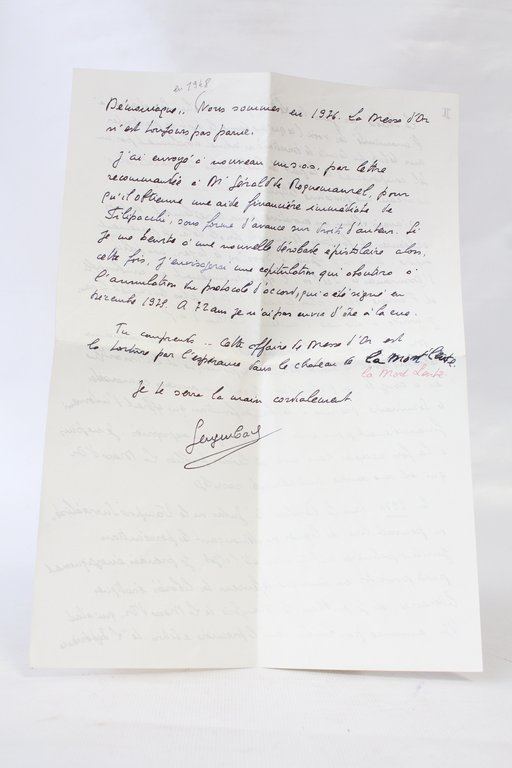 en 1948
II
Démoniaque.. Nous sommes en 1976. La Messe d'Or
n'est toujours pas parue.
J'ai envoyé à nouveau un s.o.s. par lettre
recommandée à Mr Gérald de Roquemaurel, pour
qu'il obtienne une aide financière immédiate de
Filipacchi, sous forme d'avance sur droits d'auteur. Si
je me heurte à une nouvelle dérobade épistolaire alors,
cette fois, j'envisagerai une capitulation qui aboutira à
l'annulation du protocole d'accord, qui a été signé en
décembre 1975. A 72 ans je n'ai pas envie d'être à la rue.
Tu comprends.. Cette affaire de Messe d'Or est
la torture par l'espérance dans le château de la Mort Lente.
la Mort Lente
Je te serre la main cordialement